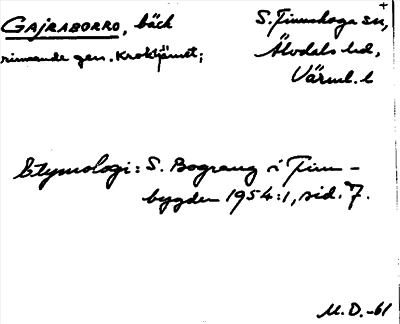 GAJRABORRO, bäck
rinnande gen. Kroktjärnet;
S. Finnskoga sn,
Älvdals hd,
Värml. l
Etymologi: S. Bograng i Finn-
bygden 1954:1, sid. 7.
M.D.-61